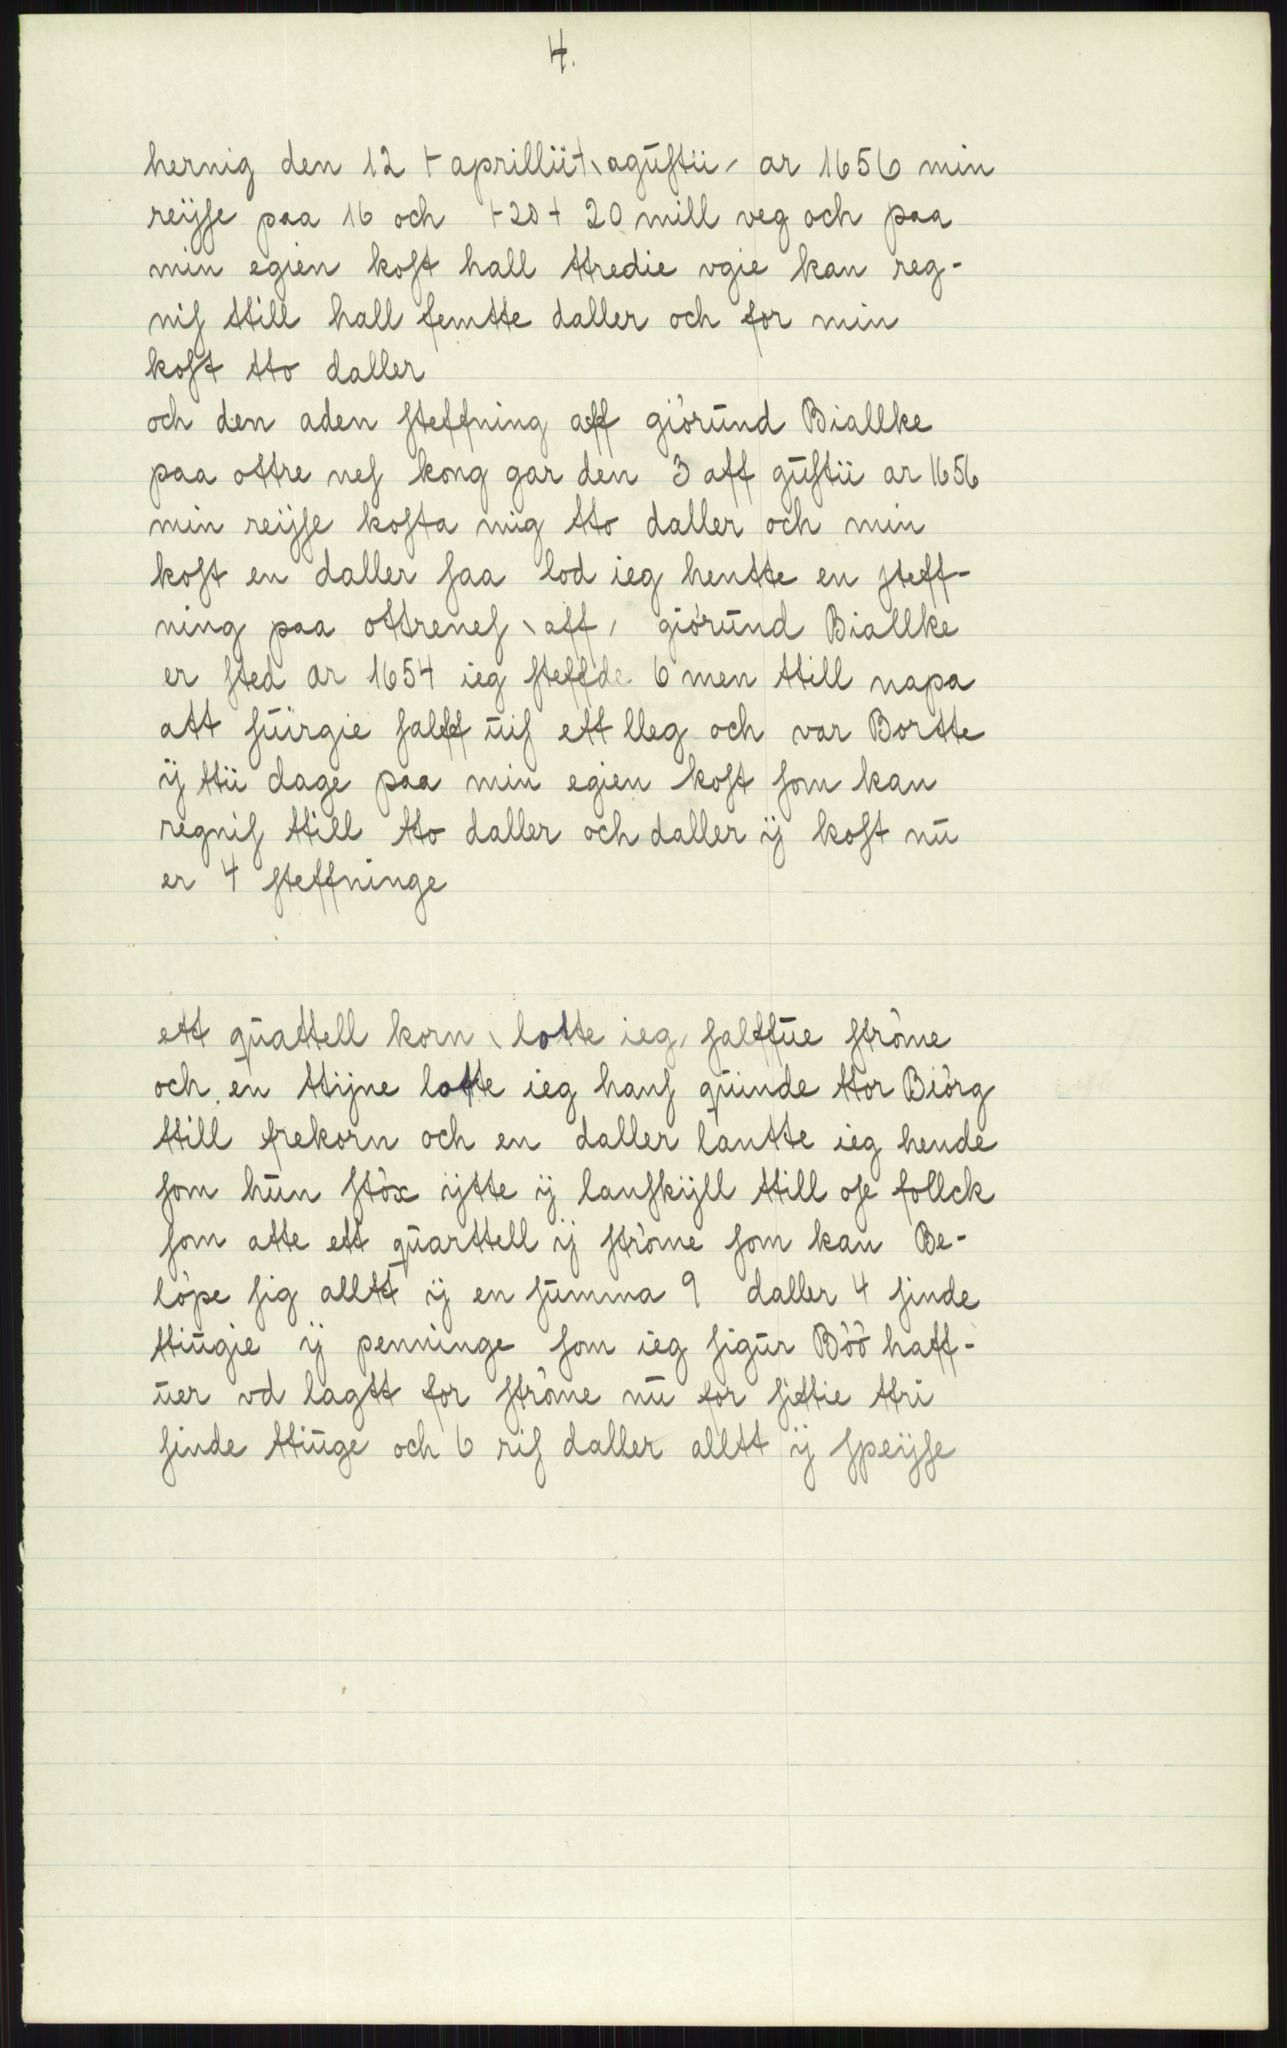 4.
hernig den 12 + aprillii + \ agustii / ar 1656 min
reijse paa 16 och + 20 + 20 mill veg och paa
min egien kost hall ttredie vgie kan reg-
nis ttill hall femtte daller och for min
kost tto daller
och den aden steffning aff giörund Biallke
paa ottre nes kong gar den 3 aff gustii ar 1656
min reijse kosta mig tto daller och min
kost en daller saa lod ieg hentte en steff-
ning paa ottrenes \ aff / giörund Biallke
er sted ar 1654 ieg steffde 6 men ttill napa
att suirgie salff uis ett lleg och var Bortte
ij ttii dage paa min egien kost som kan
regnis ttill tto daller och daller ij kost nu
er 4 steffninge
ett quattell korn \ lotte ieg / salffue ströme
och en ttijne lotte ieg hans quinde ttor Biörg
ttill frekorn och en daller lantte ieg hende
som hun stöx ijtte ij lanskijll ttill ose follck
som atte ett quarttell ij ströme som kan Be-
löpe sig alltt ij en summa 9 daller 4 sinde
ttiugie ij penninge som ieg sigur Böö haff-
uer vd lagtt for ströme nu for sittie ttri
sinde ttiuge och 6 ris daller alltt ij speijse